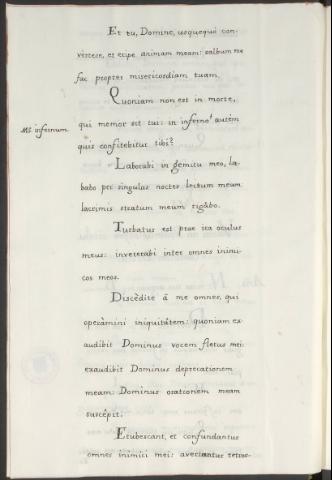 Et tu, Domine, usquequò con-
vertere, et eripe animam meam: salbum me
fac propter misericordiam tuam.
Quoniam non est in morte,
qui memor sit tui: in inferno' autem
Ms. infernum
quis confitebitur tibi?
Laborabi in gemitu meo, la-
babo per singulas noctes lectum meum
lacrimis stratum meum rigàbo.
Turbatus est prae ira oculus
meus: inveterabi inter omnes inimi-
cos meos.
Discèdite â me omnes, qui
operàmini iniquitâtem: quoniam ex-
audibit Dominus vocem fletus mei:
exaudibit Dominus deprecationem
meam: Dominus orationem meam
suscêpit:
Erubescant, et confundantur
omnes inimici mei: avertantur retror-